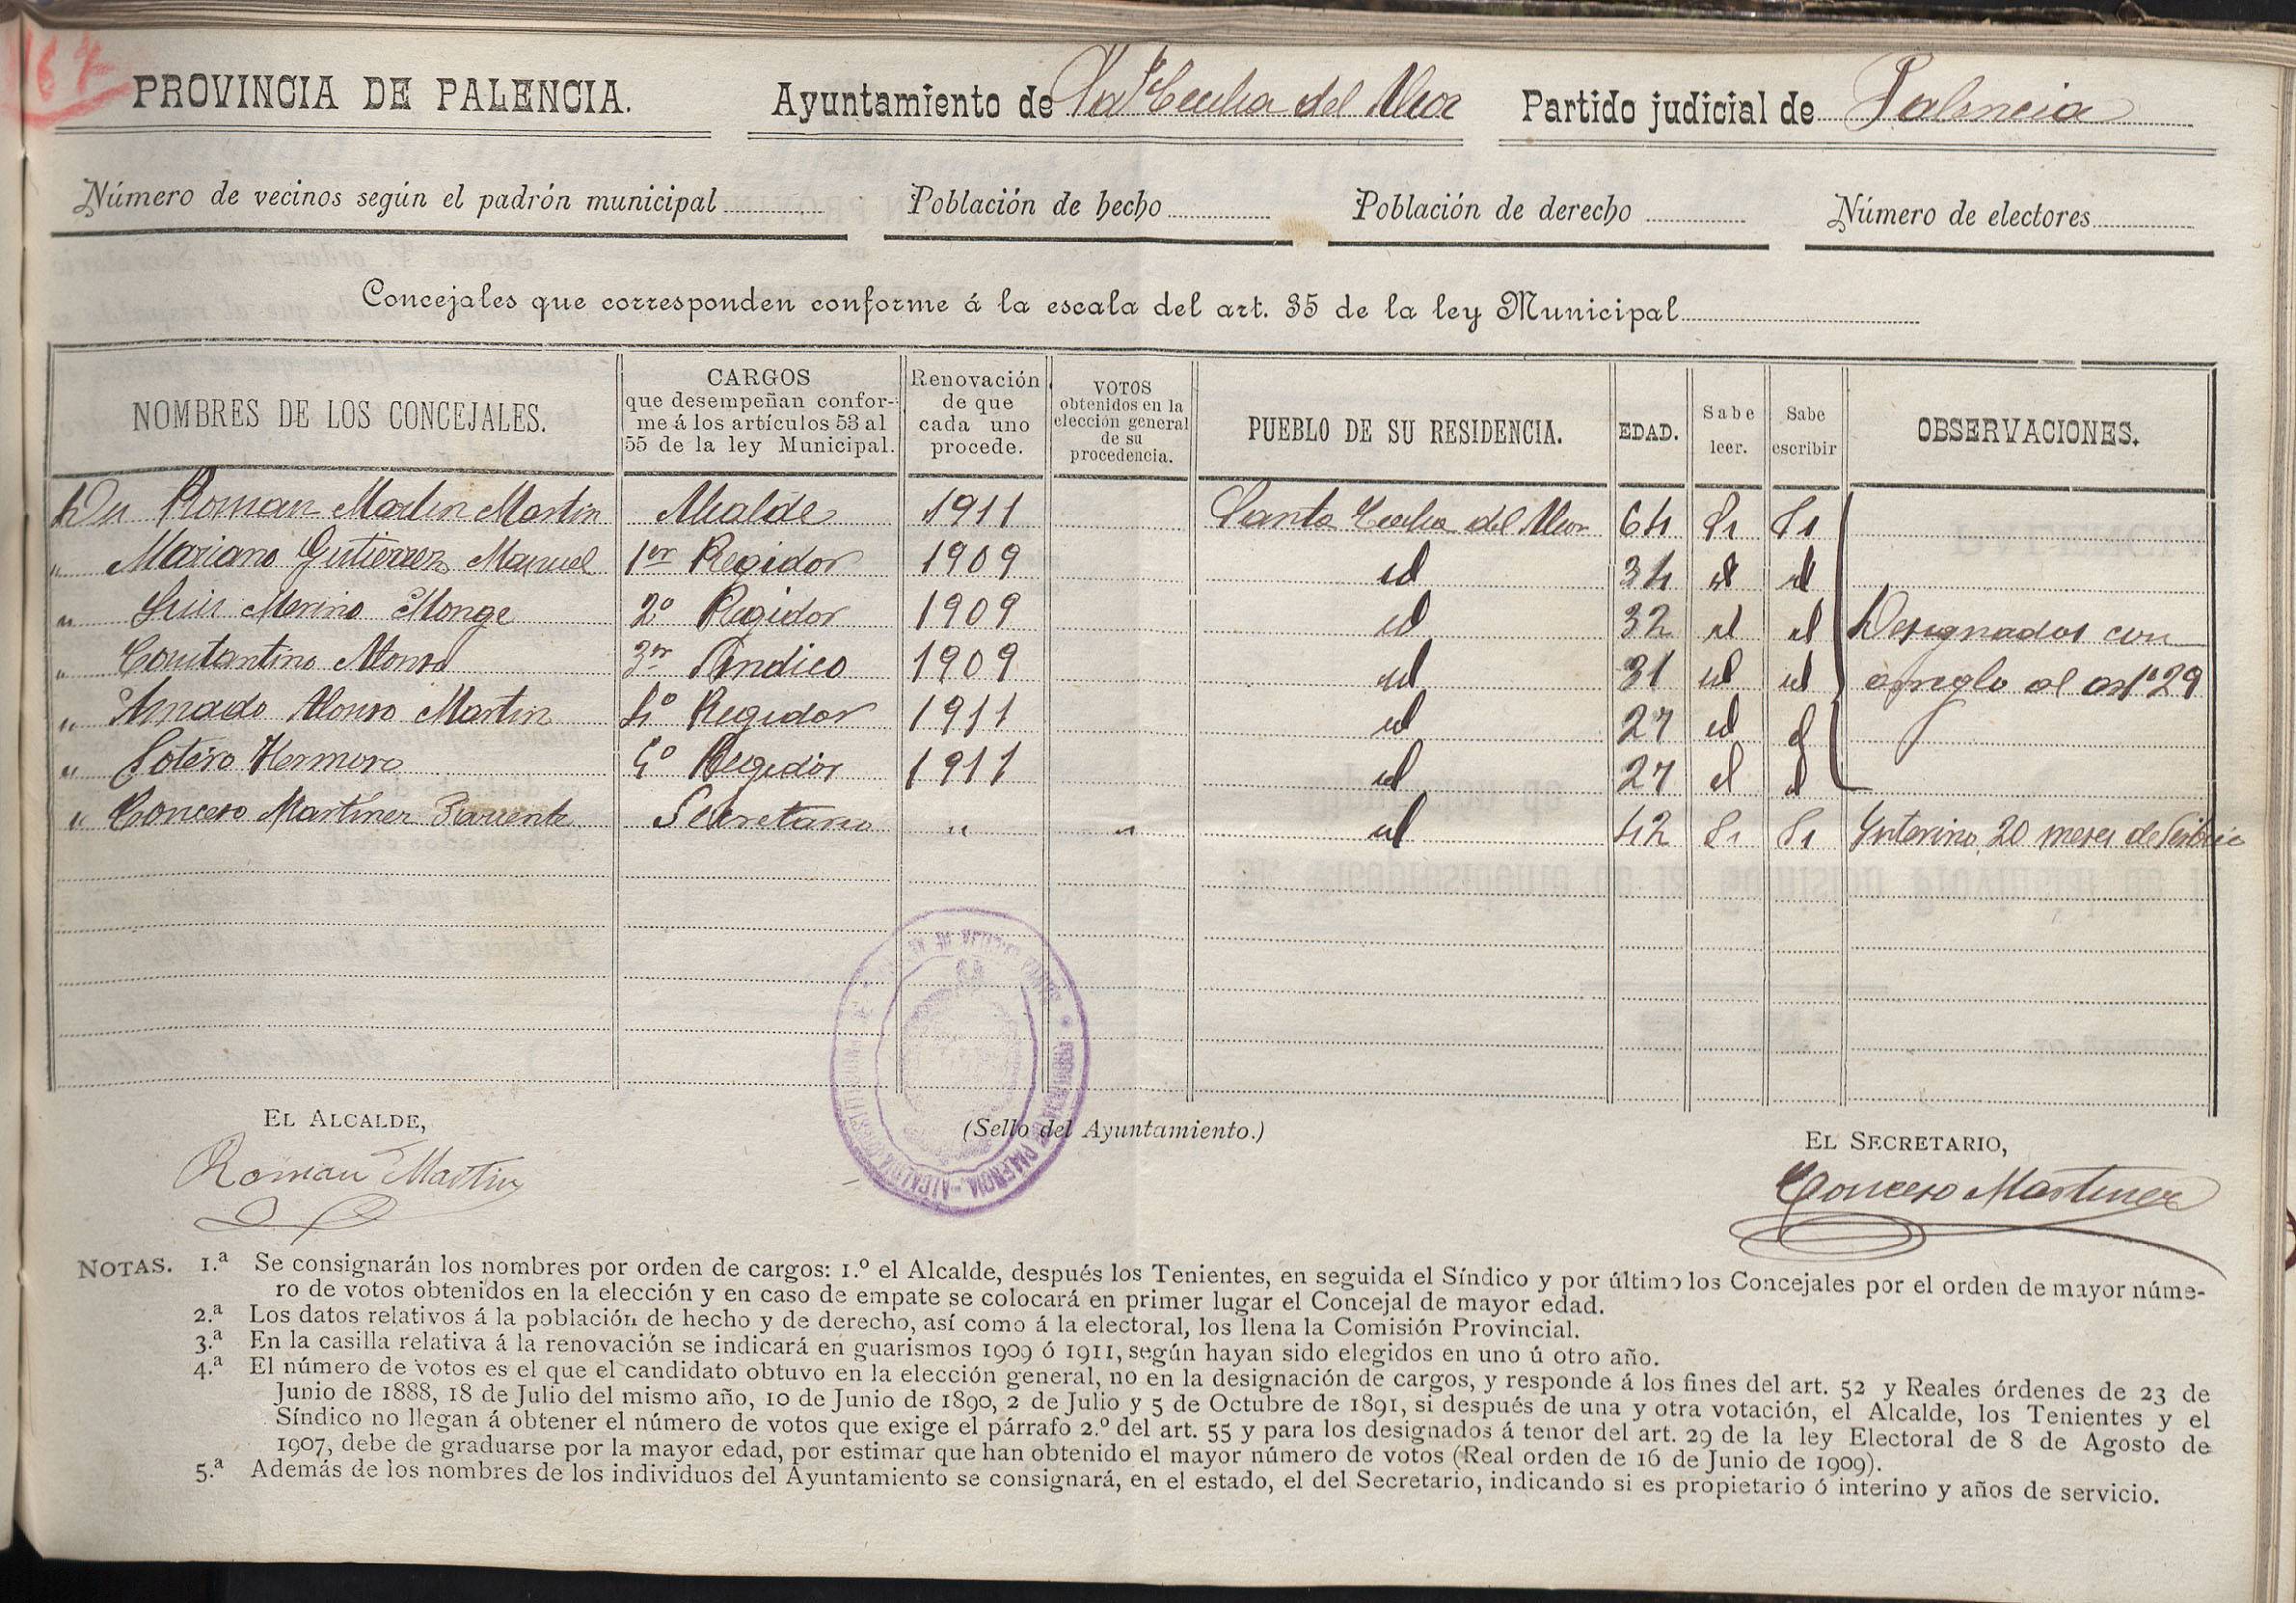 67
PROVINCIA DE PALENCIA. Ayuntamiento de Sta Cecilia del Alcor Partido judicial de Palencia
Número de vecinos según el padrón municipal Población de hecho Población de derecho Número de electores
Concejales que corresponden conforme á la escala del art. 35 de la ley Municipal
NOMBRES DE LOS CONCEJALES.
CARGOS
que desempeñan confor-
me á los artículos 53 al
55 de la ley Municipal.
Renovación
de que
cada uno
procede.
VOTOS
obtenidos en la
elección general
de su
procedencia.
PUEBLO DE SU RESIDENCIA.
EDAD.
Sabe
leer.
Sabe
escribir
OBSERVACIONES.
Dn Roman Martin Martin Alcalde 1911 Santa Cecilia del Alcor 64 Si Si
" Mariano Gutierrez Manuel 1er Regidor 1909 id 34 id id
" Luis Merino Monge 2º Regidor 1909 id 32 id id
" Constantino Alonso 3er Sindico 1909 id 31 id id
" Amado Alonso Martin 4º Regidor 1911 id 27 id id
" Sotero Hermoso 5º Regidor 1911 id 27 id id
Designados con
arreglo al artº 29
" Martinez Secretario " " id 42 Si Si Interino, 20 meses de
EL ALCALDE,
Roman Martin
(Sello del Ayuntamiento.)
PROVINCIA DE PALENCIA.-ALCALDIA CONSTITUCIONAL
EL SECRETARIO,
Martinez
NOTAS. 1.ª Se consignarán los nombres por orden de cargos: 1.º el Alcalde, después los Tenientes, en seguida el Síndico y por último los Concejales por el orden de mayor núme-
ro de votos obtenidos en la elección y en caso de empate se colocará en primer lugar el Concejal de mayor edad.
2.ª Los datos relativos á la población de hecho y de derecho, así como á la electoral, los llena la Comisión Provincial.
3.ª En la casilla relativa á la renovación se indicará en guarismos 1909 ó 1911, según hayan sido elegidos en uno ú otro año.
4.ª El número de votos es el que el candidato obtuvo en la elección general, no en la designación de cargos, y responde á los fines del art. 52 y Reales órdenes de 23 de
Junio de 1888, 18 de Julio del mismo año, 10 de Junio de 1890, 2 de Julio y 5 de Octubre de 1891, si después de una y otra votación, el Alcalde, los Tenientes y el
Síndico no llegan á obtener el número de votos que exige el párrafo 2.º del art. 55 y para los designados á tenor del art. 29 de la ley Electoral de 8 de Agosto de
1907, debe de graduarse por la mayor edad, por estimar que han obtenido el mayor número de votos (Real orden de 16 de Junio de 1909).
5.ª Además de los nombres de los individuos del Ayuntamiento se consignará, en el estado, el del Secretario, indicando si es propietario ó interino y años de servicio.